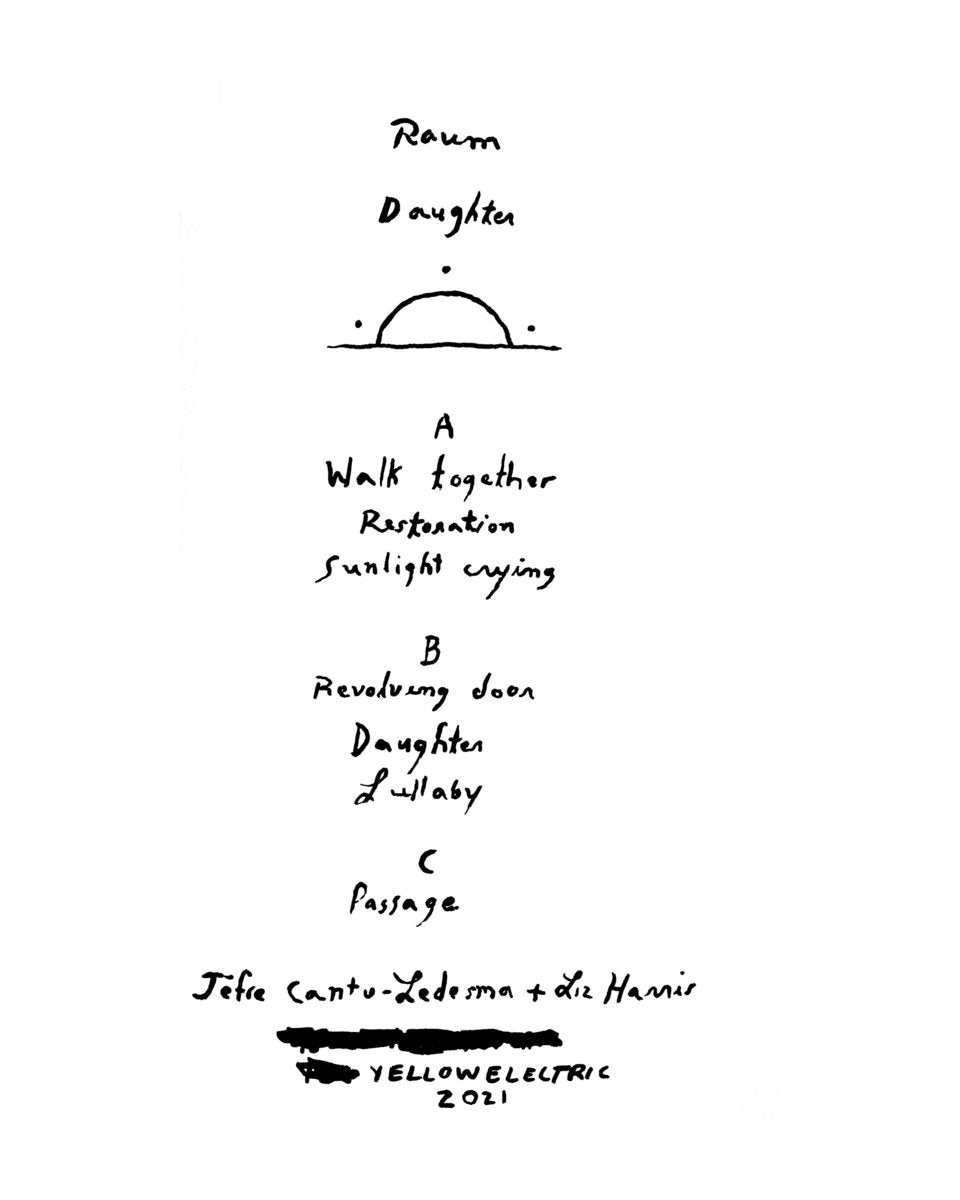 Raum
Daughter
A
Walk together
Restoration
Sunlight crying
B
Revolving door
Daughter
Lullaby
C
Passage
Jefre Cantu-Ledesma + Liz Harris
YELLOWELECTRIC
2021